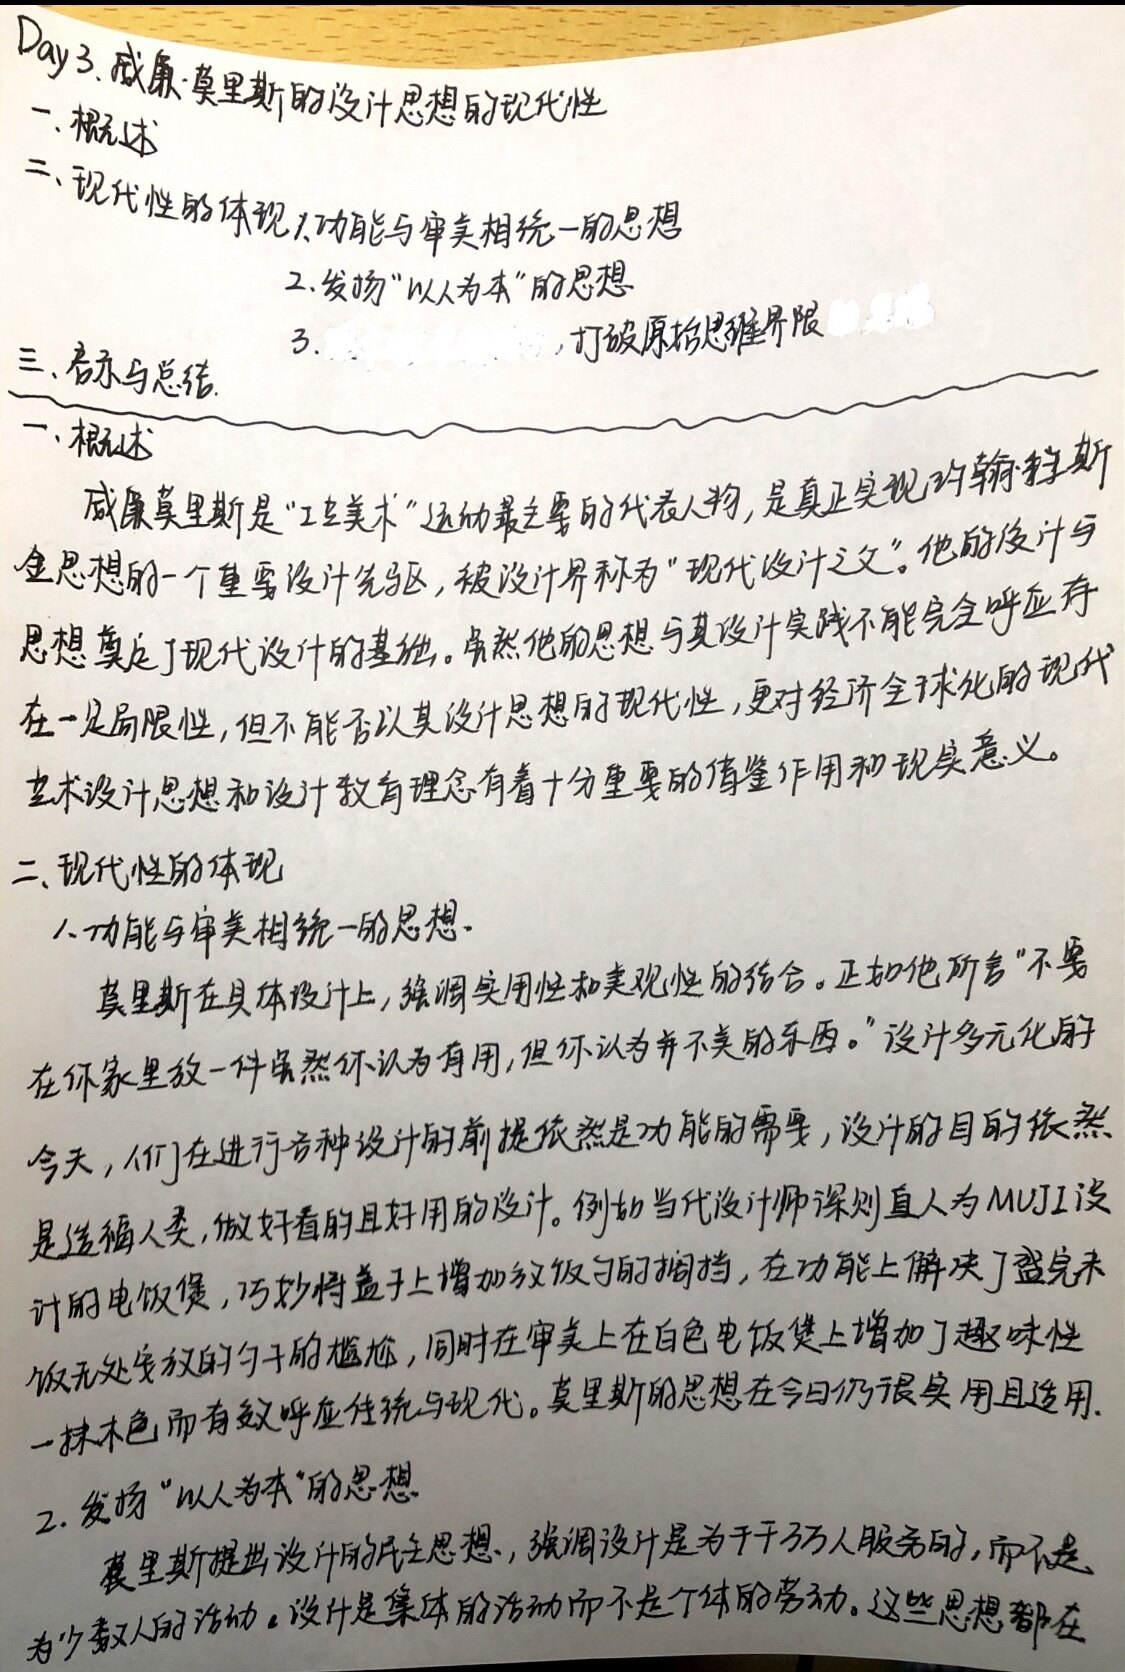 Day 3. 威廉·莫里斯的设计思想的现代性
一、概述
二、现代性的体现 1.功能与审美相统一的思想
2.发扬“以人为本”的思想
3. ，打破原始思维界限
三、启示与总结.
一、概述
威廉莫里斯是“工艺美术”运动最主要的代表人物，是真正实现约翰·拉斯
金思想的一个重要设计先驱，被设计界称为“现代设计之父”。他的设计与
思想奠定了现代设计的基础。虽然他的思想与其设计实践不能完全呼应存
在一定局限性，但不能否认其设计思想的现代性，更对经济全球化的现代
艺术设计思想和设计教育理念有着十分重要的借鉴作用和现实意义。
二、现代性的体现
1.功能与审美相统一的思想.
莫里斯在具体设计上，强调实用性和美观性的结合。正如他所言“不要
在你家里放一件虽然你认为有用，但你认为并不美的东西。”设计多元化的
今天，人们在进行各种设计的前提依然是功能的需要，设计的目的依然
是造福人类，做好看的且好用的设计。例如当代设计师深则直人为MUJI设
计的电饭煲，巧妙将盖子上增加放饭勺的搁挡，在功能上解决了盛完米
饭无处安放的勺子的尴尬，同时在审美上在白色电饭煲上增加了趣味性
一抹木色而有效呼应传统与现代。莫里斯的思想在今日仍很实用且适用.
2.发扬“以人为本”的思想
莫里斯提出设计的民主思想，强调设计是为千千万万人服务的，而不是
为少数人的活动。设计是集体的活动而不是个体的劳动。这些思想都在